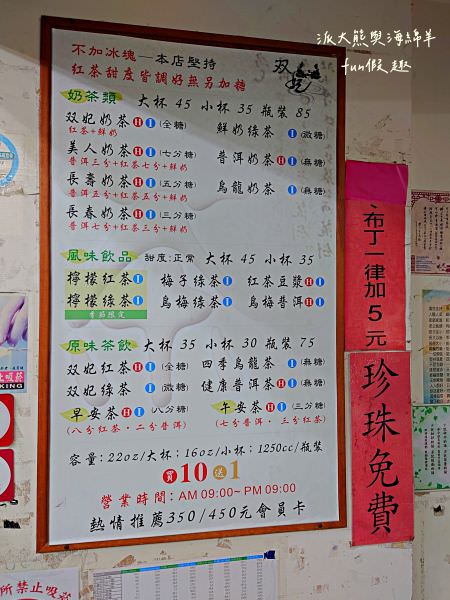 派大熊與海綿羊
fun假趣
不加冰塊—本店堅持
紅茶甜度皆調好無另加糖
双妃
奶茶類 大杯 45 小杯 35 瓶裝 85
双妃奶茶HI(全糖) 鮮奶綠茶I(微糖)
紅茶+鮮奶
美人奶茶HI(七分糖) 普洱奶茶HI(無糖)
普洱三分+紅茶七分+鮮奶
長壽奶茶HI(五分糖) 烏龍奶茶I(無糖)
普洱五分+紅茶五分+鮮奶
長春奶茶HI(三分糖)
普洱七分+紅茶三分+鮮奶
風味飲品 甜度:正常 大杯 45 小杯 35
檸檬紅茶I 梅子綠茶I 紅茶豆漿HI
檸檬綠茶I 烏梅綠茶I 烏梅普洱HI
季節限定
原味茶飲 大杯 35 小杯 30 瓶裝 75
双妃紅茶HI(全糖) 四季烏龍茶I(無糖)
双妃綠茶I(微糖) 健康普洱茶HI(無糖)
早安茶HI(八分糖) 午安茶HI(三分糖)
(八分紅茶·二分普洱) (七分普洱·三分紅茶)
容量:22oz/大杯;16oz/小杯;1250cc/瓶裝
買10送1
營業時間:AM 09:00~ PM 09:00
熱情推薦350/450元會員卡
布丁一律加5元
珍珠免費
KING
所禁止吸菸